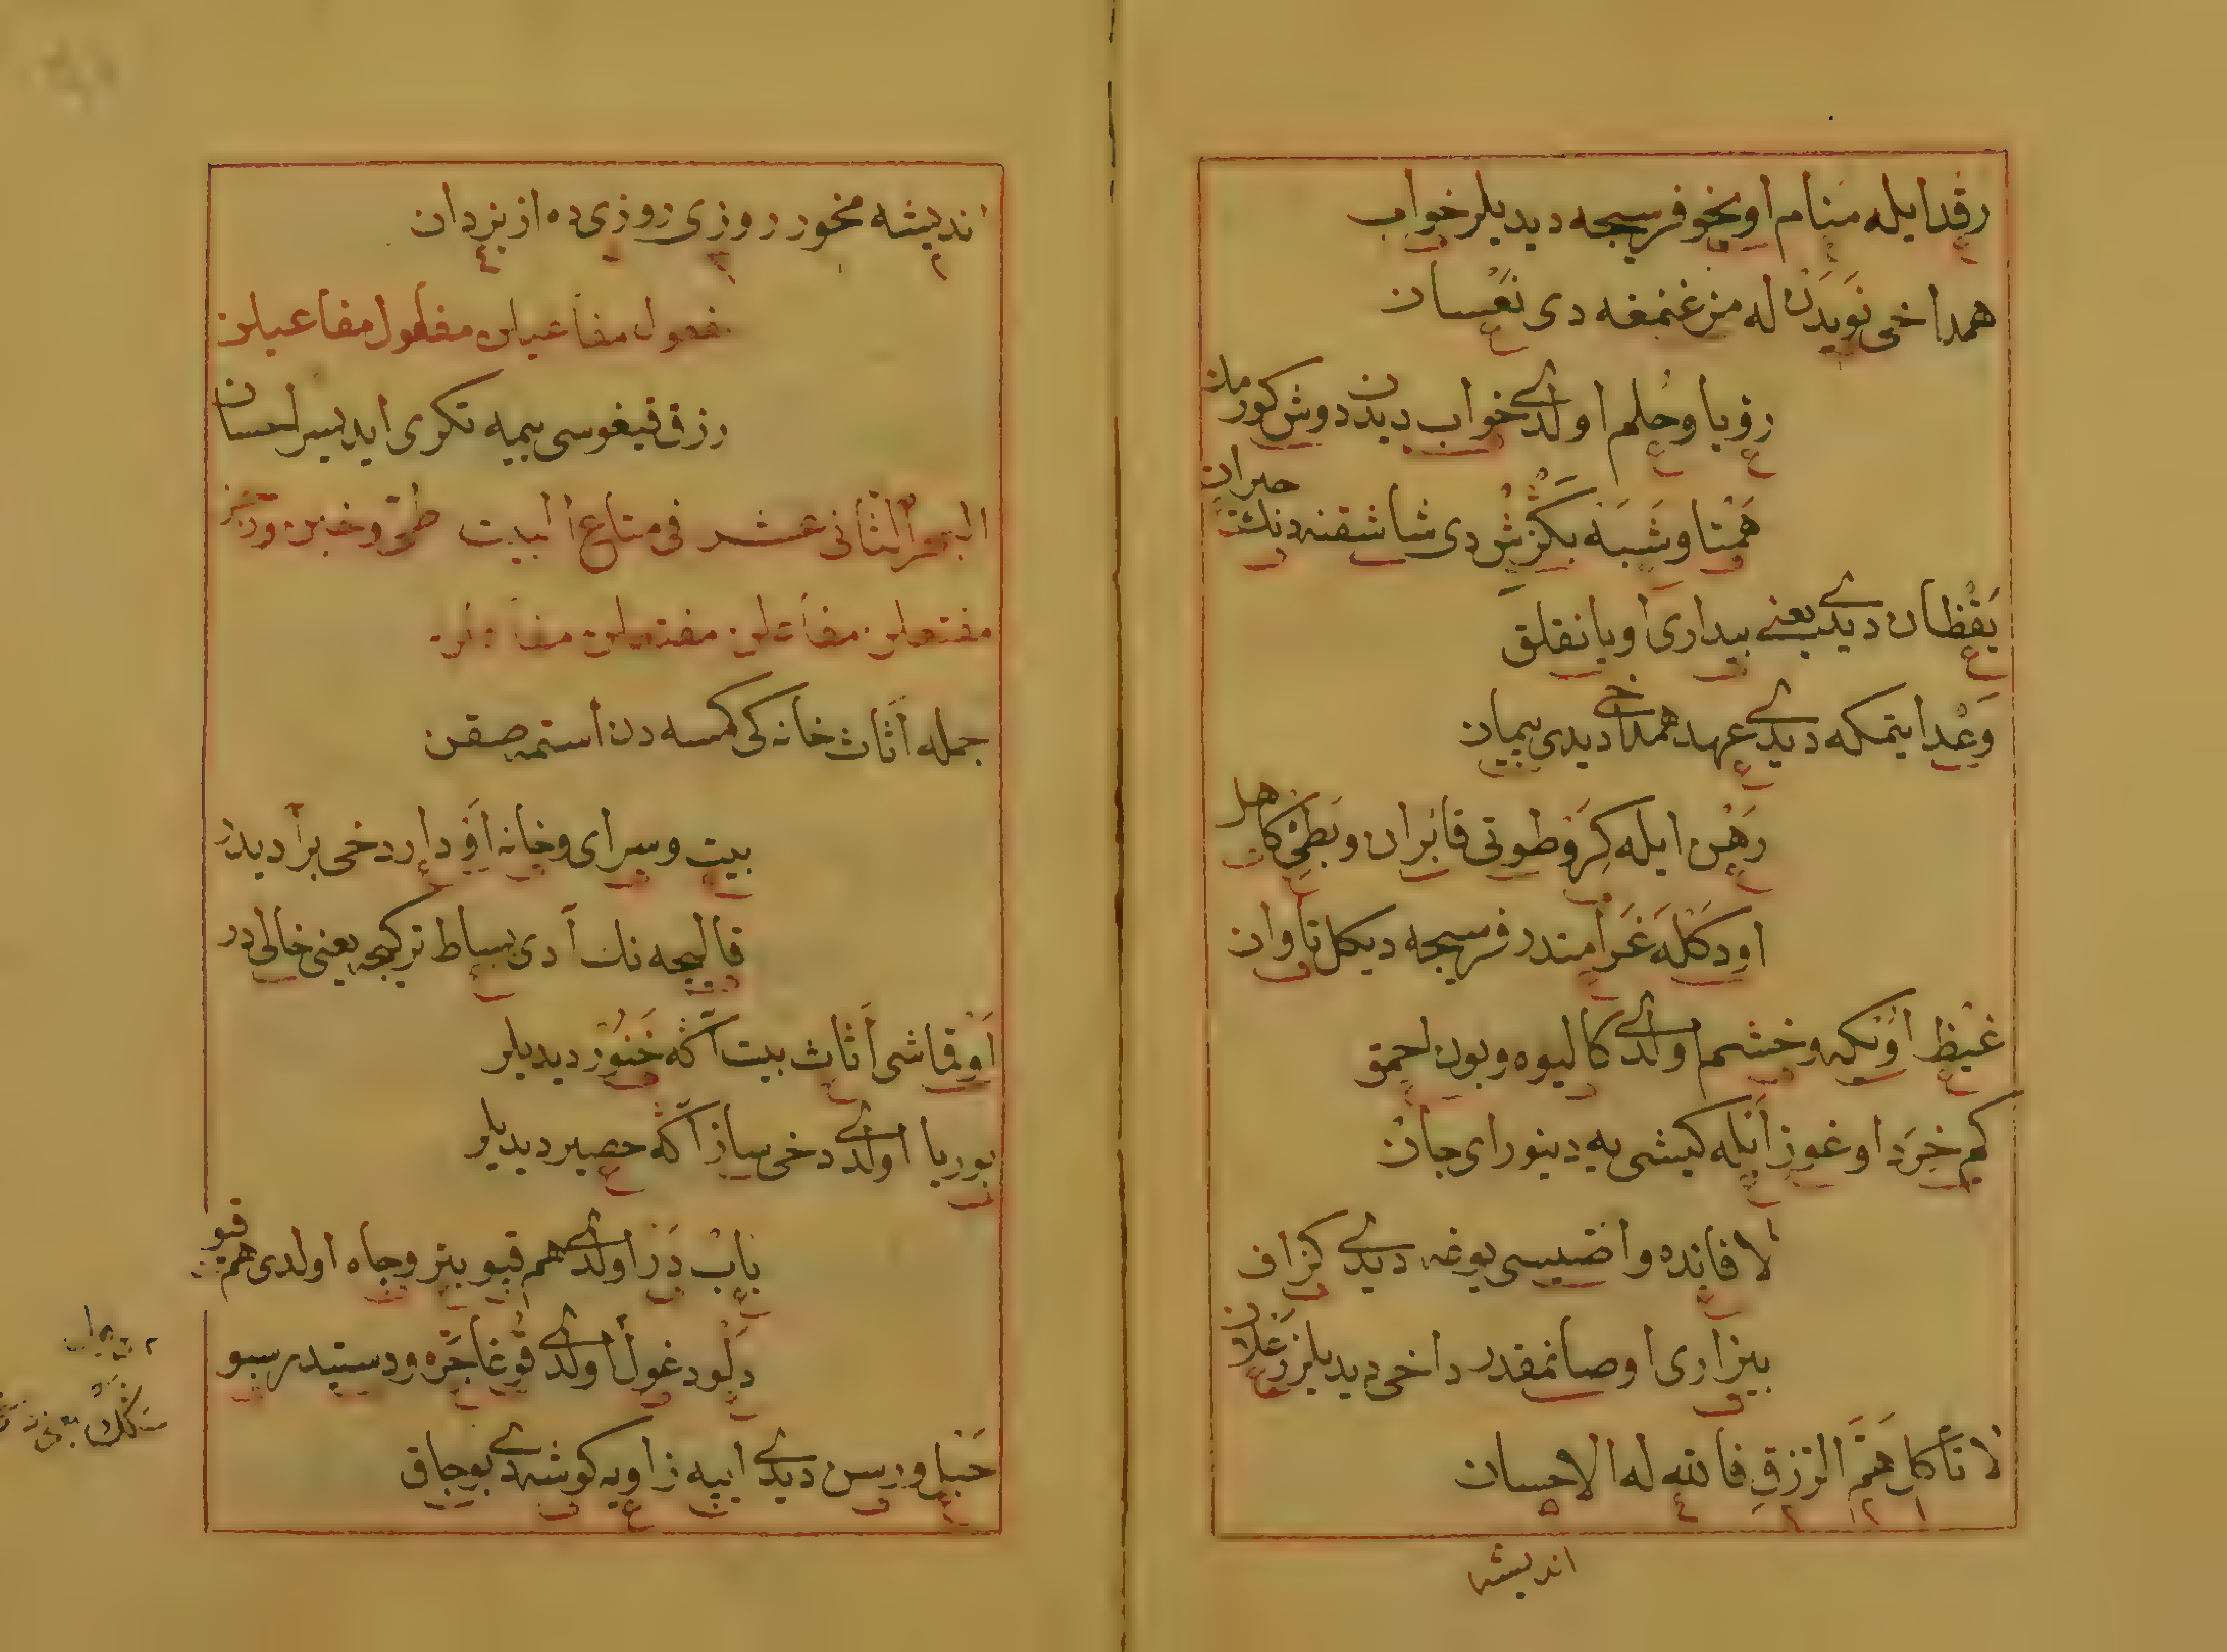 رقد ايله منام اويخو فرسجه ديديلر خواب
همداخی نويدن له من غنمغه دی نعسان
رؤيا و حلم اولدی خواب ديدن دوش كورملن
همتا و شبه بكزش دی شاشقنه دنك حيران
يقظان ديدی يعنی بيداری اويانقلق
وعد ايتمكه ديدی عهد همداخی ديدی پيمان
رهن ايله كرو طوتی قائران و بطئ كاهل
اودكله غرامتدر فرسجه ديكل تاوان
غيظ اوبكه و خشم اولدی كاليوه و بون احمق
كم خرد اوغوز ابله كيشی يه دينور ای جان
لا فائده واصيسی يوغه ديدی كزاف
بيزاری اوصانمقدر داخی ديديلر زعلان
لا تأكل هم الرزق فالله له الاحسان
انديشه
انديشه مخور روزی روزی ده از يزدان
مفعول مفاعيلن مفعول مفاعيلن
رزق قيغوسی يميه تكری ايديسر احسان
البحر الثانی عشر فی متاع البيت طی و خبن و رجز
مفتعلن مفاعلن مفتعلن مفاعلن
جمله اثاث خانه كی كمسه دن استمه صقن
بيت و سرای و خانه او دار دخی برا ديدر
قاليجه نك آدی بساط تركيجه يعنی خالی در
او قماشی اثاث بيت اكه خنور ديديلر
بوريا اولدی دخی ساز اكه حصير ديديلر
باب در اولدی هم قپو بئر و چاه اولدی هم قيو
دلو دغول اولدی قوغا جره و دستيدر سبو
حبل و رسن ديدی ايپه زاويه كوشه دی بوجاق